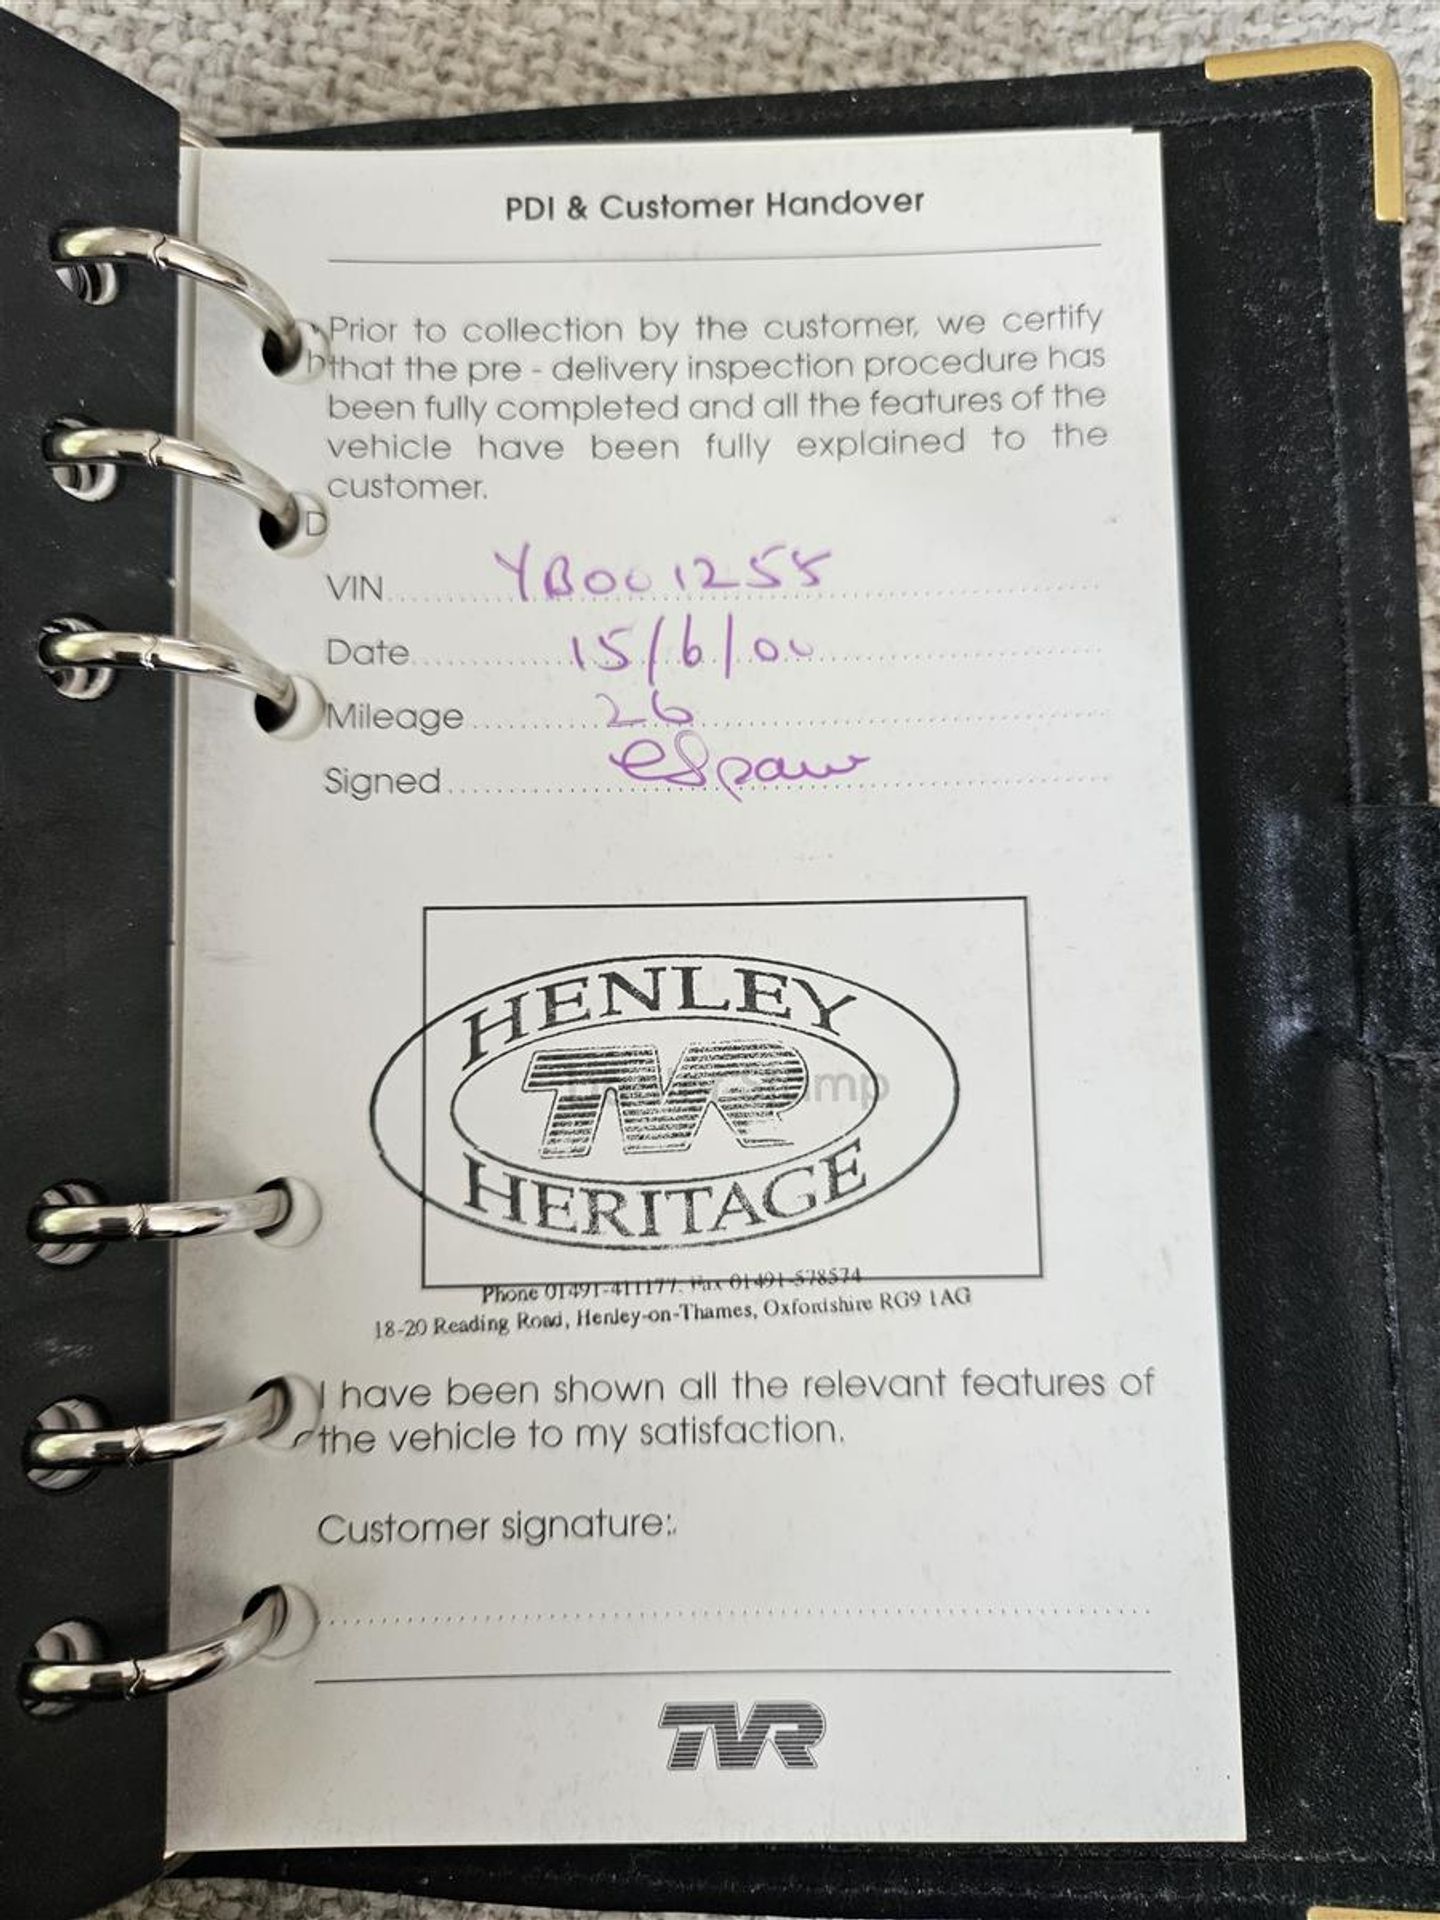 PDI & Customer Handover
Prior to collection by the customer, we certify
that the pre - delivery inspection procedure has
been fully completed and all the features of the
vehicle have been fully explained to the
customer.
D
VIN YB001255
Date 15/6/00
Mileage 26
Signed
HENLEY
TVR
HERITAGE
Phone 01491-411177. Fax 01491-578574
18-20 Reading Road, Henley-on-Thames, Oxfordshire RG9 1AG
I have been shown all the relevant features of
the vehicle to my satisfaction.
Customer signature:
TVR